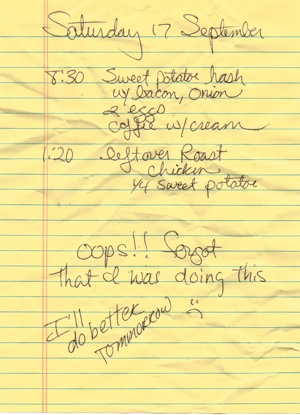 Saturday 17 September
8:30 Sweet potato hash
w/ bacon, onion
2 eggs
coffee w/cream
1:20 leftover Roast
Chicken
1/4 sweet potatoe
oops!! forgot
That I was doing this
I'll
do better
tommorrow :)